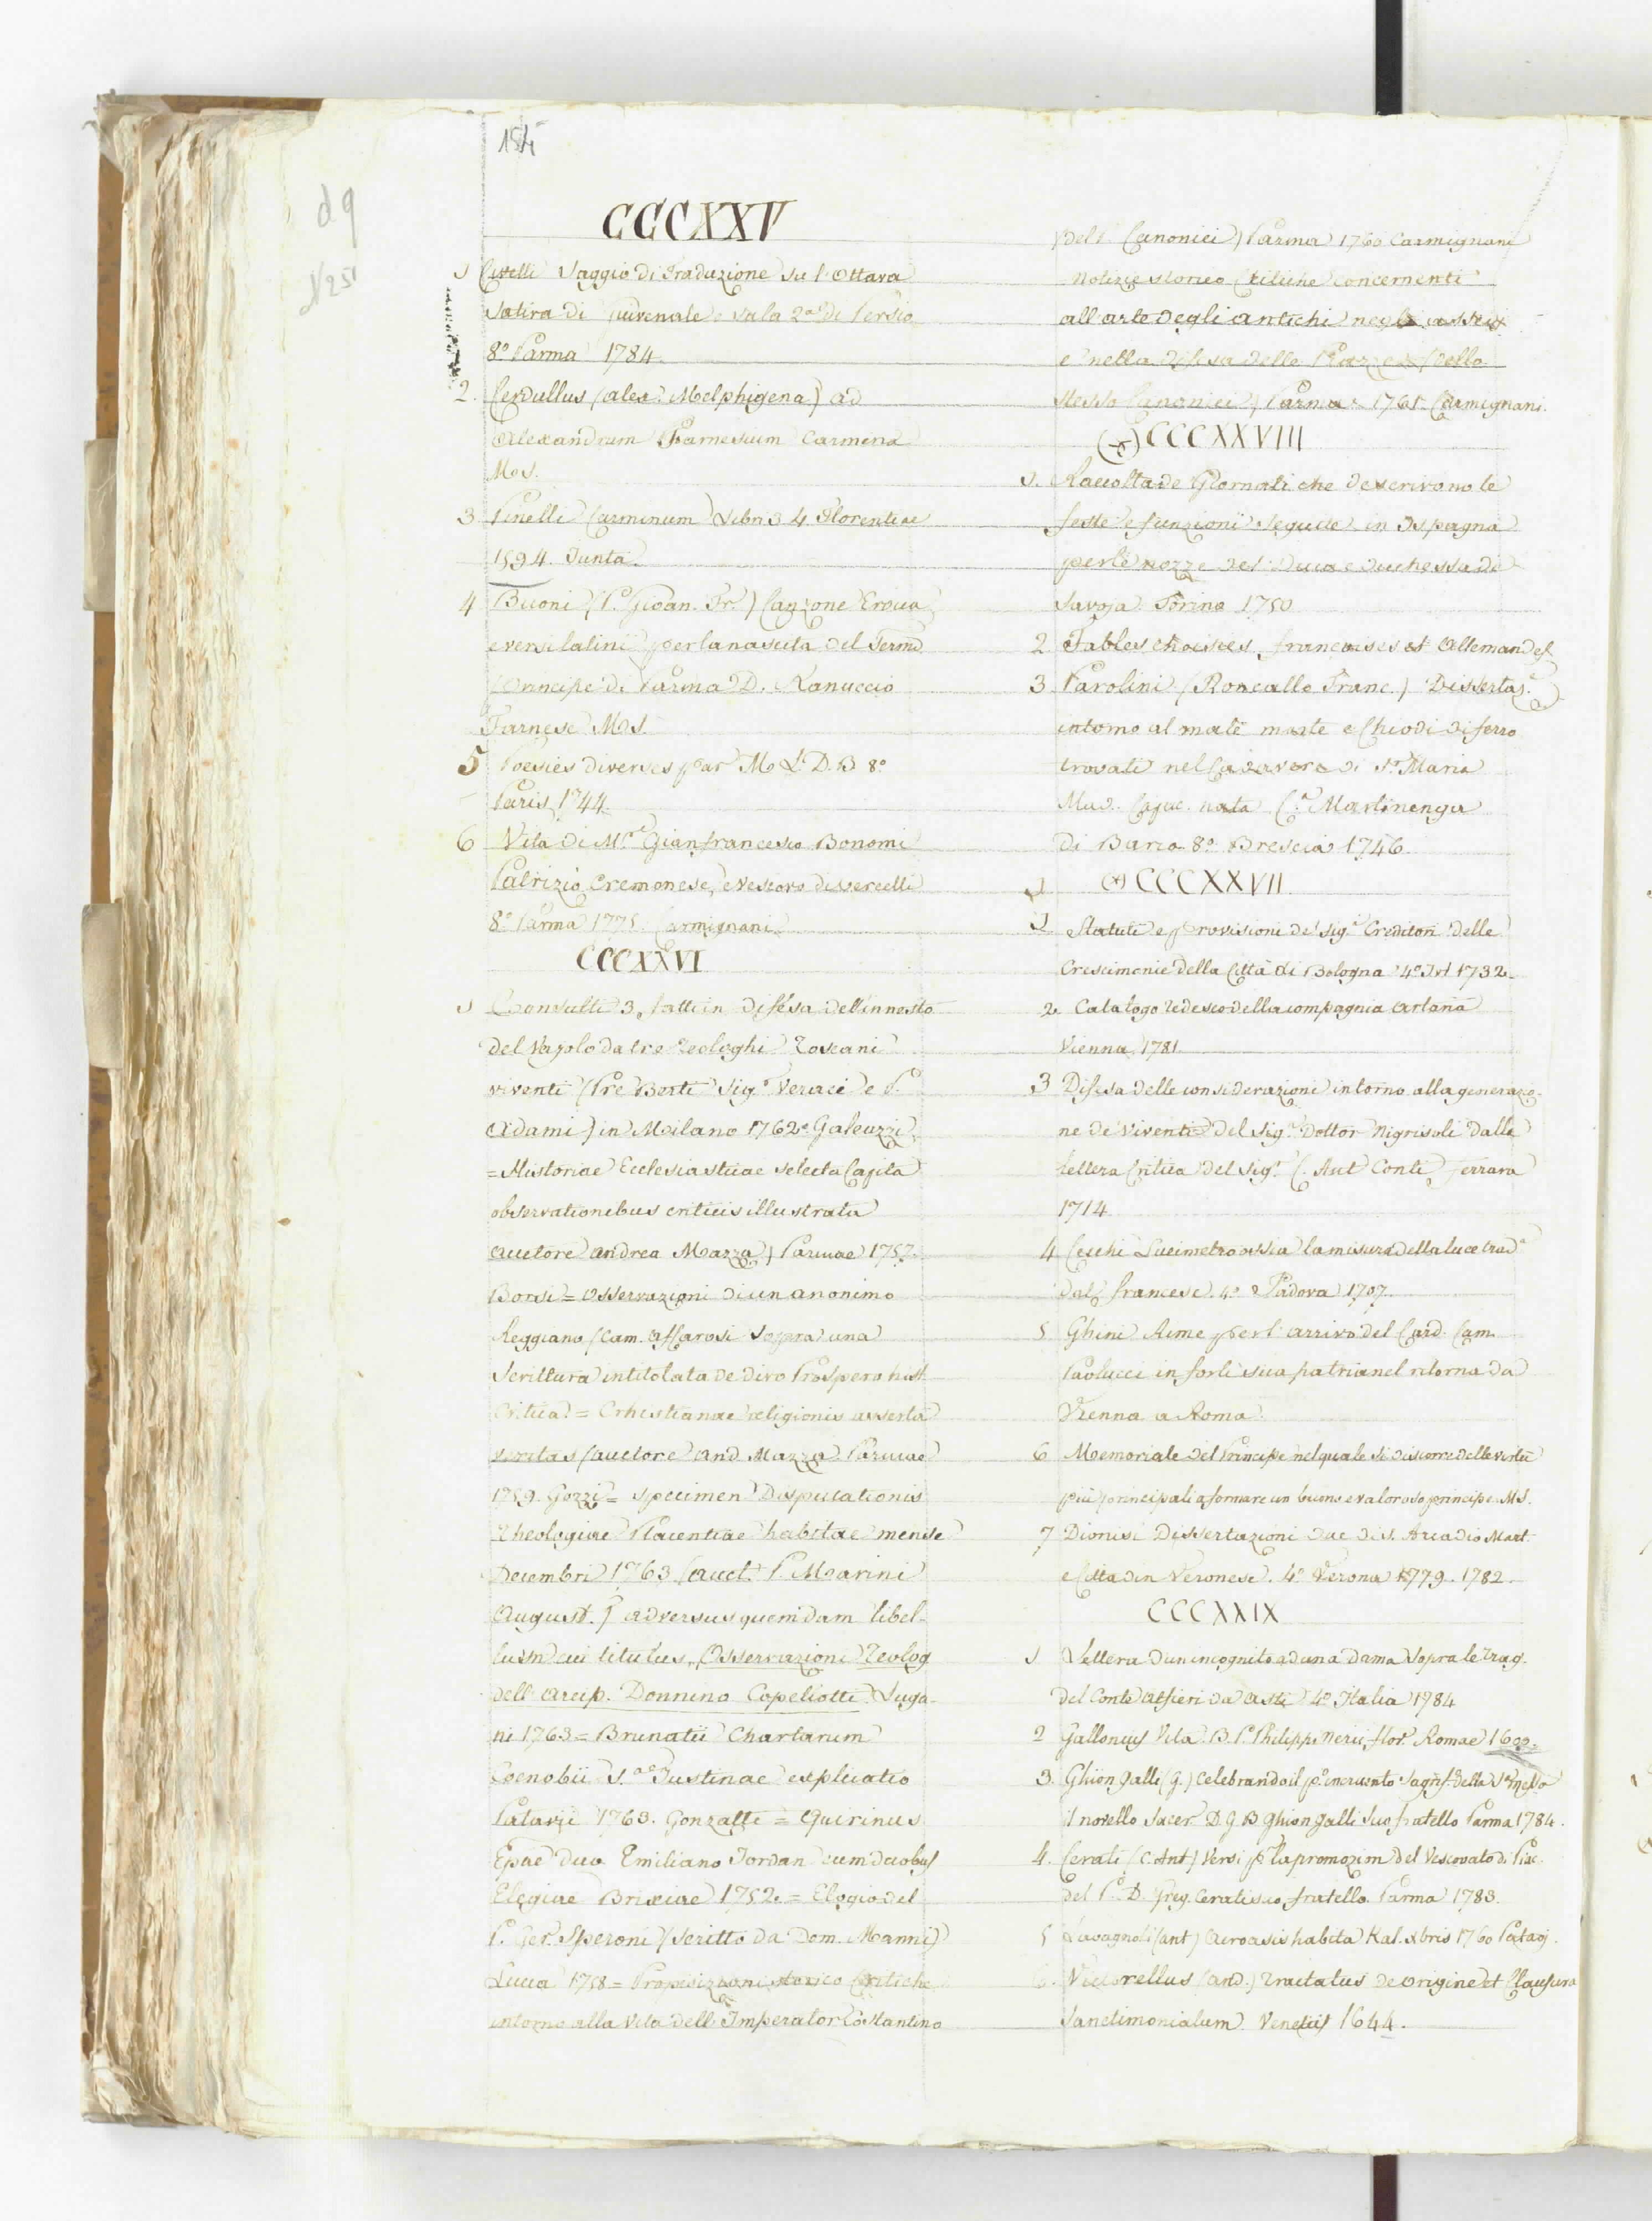 154
d 9
N 251
CCCXXV
1 Civelli Saggio di Traduzione su l'Ottava
Satira di Giuvenale e sula 2.a di Persio
8.o Parma 1784.
2. Cerdullus (alex. Melphigena) ad
Alexandrum Farnesium Carmena
Ms.
3 Pinelli Carminum Libri 3 4. Florentiae
1594. Junta.
4 Buoni (P. Gioan. Fr.) Canzone Eroica
e versi latini per la nascita del Sermo
Principe di Parma D. Ranuccio
Farnese Ms.
5 Poesies diverses par M. L. D. B 8.o
Paris 1744.
6 Vita di M.r Gianfrancesco Bonomi
Patrizio Cremonese, e Vescovo di Vercelli
8.o Parma 1775. Carmignani.
CCCXXVI
1 Consulti 3, fatti in difesa dell'innesto
del Vajolo da tre Teologhi Toscani
viventi (Pre Berti Sig.r Veraci e P.
Adami) in Milano 1762. Galeazzi.
=Historiae Ecclesiasticae selecta Capita
observationibus criticis illustrata
auctore Andrea Mazza) Parmae 1757.
Borsi = Osservazioni di un anonimo
Reggiano (Cam. Affarosi sopra una
Scrittura intitolata de divo Prospero hist.
Critica. = Crhistianae religionis asserta
veritas (auctore And. Mazza Parmae
1759. Gozzi = Specimen Disputationis
Theologiae Placentiae habitae mense
Decembri 1763 (auct. P. Marini
August.) adversus quemdam libel-
lum cui titulus, Osservazioni Teolog
dell' Arcip. Donnino Copeliotti. Luga-
ni 1763 = Brunatii Chartarum
Coenobii S.ae Justinae explicatio
Patavii 1763. Conzatti = Quirinus
Epae duo Emiliano Jordan cum duobus
Elegiae Brixiae 1752. = Elogio del
P. Ger. Speroni (scritto da Dom. Manni)
Lucca 1758 = Proposizioni storico Critiche
intorno alla Vita dell' Imperator Costantino
(del P. Canonici) Parma 1760 Carmignani
Notizie storico Critiche concernenti
all' arte degli antichi
e nella difesa delle
stesso Canonici) Parma. 1761. Carmignani.
(x) CCCXXVIII
1. Raccolta de Giornali che descrivono le
feste e funzioni seguite in Ispagna
per le nozze del Duca e Duchessa di
Savoja Torino 1750
2 Fables choisies francaises et Allemandes
3 Parolini (Roncallo Franc.) Dissertaz.e
intorno al
trovati nel Cadavere di S.r Maria
Mad. Capuc. nata C.a Martinenga
di Barco 8.o Brescia 1746.
(x) CCCXXVII
1 Statuti e provisioni de' Sig.i Creditori delle
Crescimonie della Città di Bologna 4.o Ivi 1732.
2. Catalogo Tedesco della compagnia Artaria
Vienna 1781.
3 Difesa delle considerazioni intorno alla generazio-
ne de' Viventi del Sig.r Dottor Nigrisoli dalla
Lettera Critica del Sig.r C. Ant Conti, Ferrara
1714.
4 Ceschi Lucimetro ossia la misura della luce trad.a
dal francese. 4.o Padova 1707.
5 Ghini Rime per l' arrivo del Card. Cam.
Paolucci in Forlì sua patria nel ritorno da
Vienna a Roma.
6 Memoriale del Principe nel quale si discorre delle virtù
più principali a formare un buono e valoroso principe Ms.
7 Dionisi Dissertazioni due di S. Arcadio Mart.
e Cittadin Veronese. 4.o Verona 1779. 1782.
CCCXXIX
1 Lettera d'un incognito ad una Dama sopra le Trag.
del Conte Alfieri da Asti 4.o Italia 1784
2 Gallonius Vita B. P. Philippi Nerii flor. Romae 1600.
3. Ghiongalli (G.) Celebrando il p.o incruento Sagrif. della
il novello Sacer. D. G. B Ghiongalli suo fratello Parma 1784.
4. Cerati (C. Ant) Versi p la promozion del Vescovato di Piac
del P. D. Greg. Cerati suo fratello. Parma 1783.
5 Lavagnoli (ant) Acroasis habita Kal. Xbris 1760 Patavj.
6. Victorellus (and.) Tractatus de origine et Clausura
Sanctimonialum. Venetiis 1644.